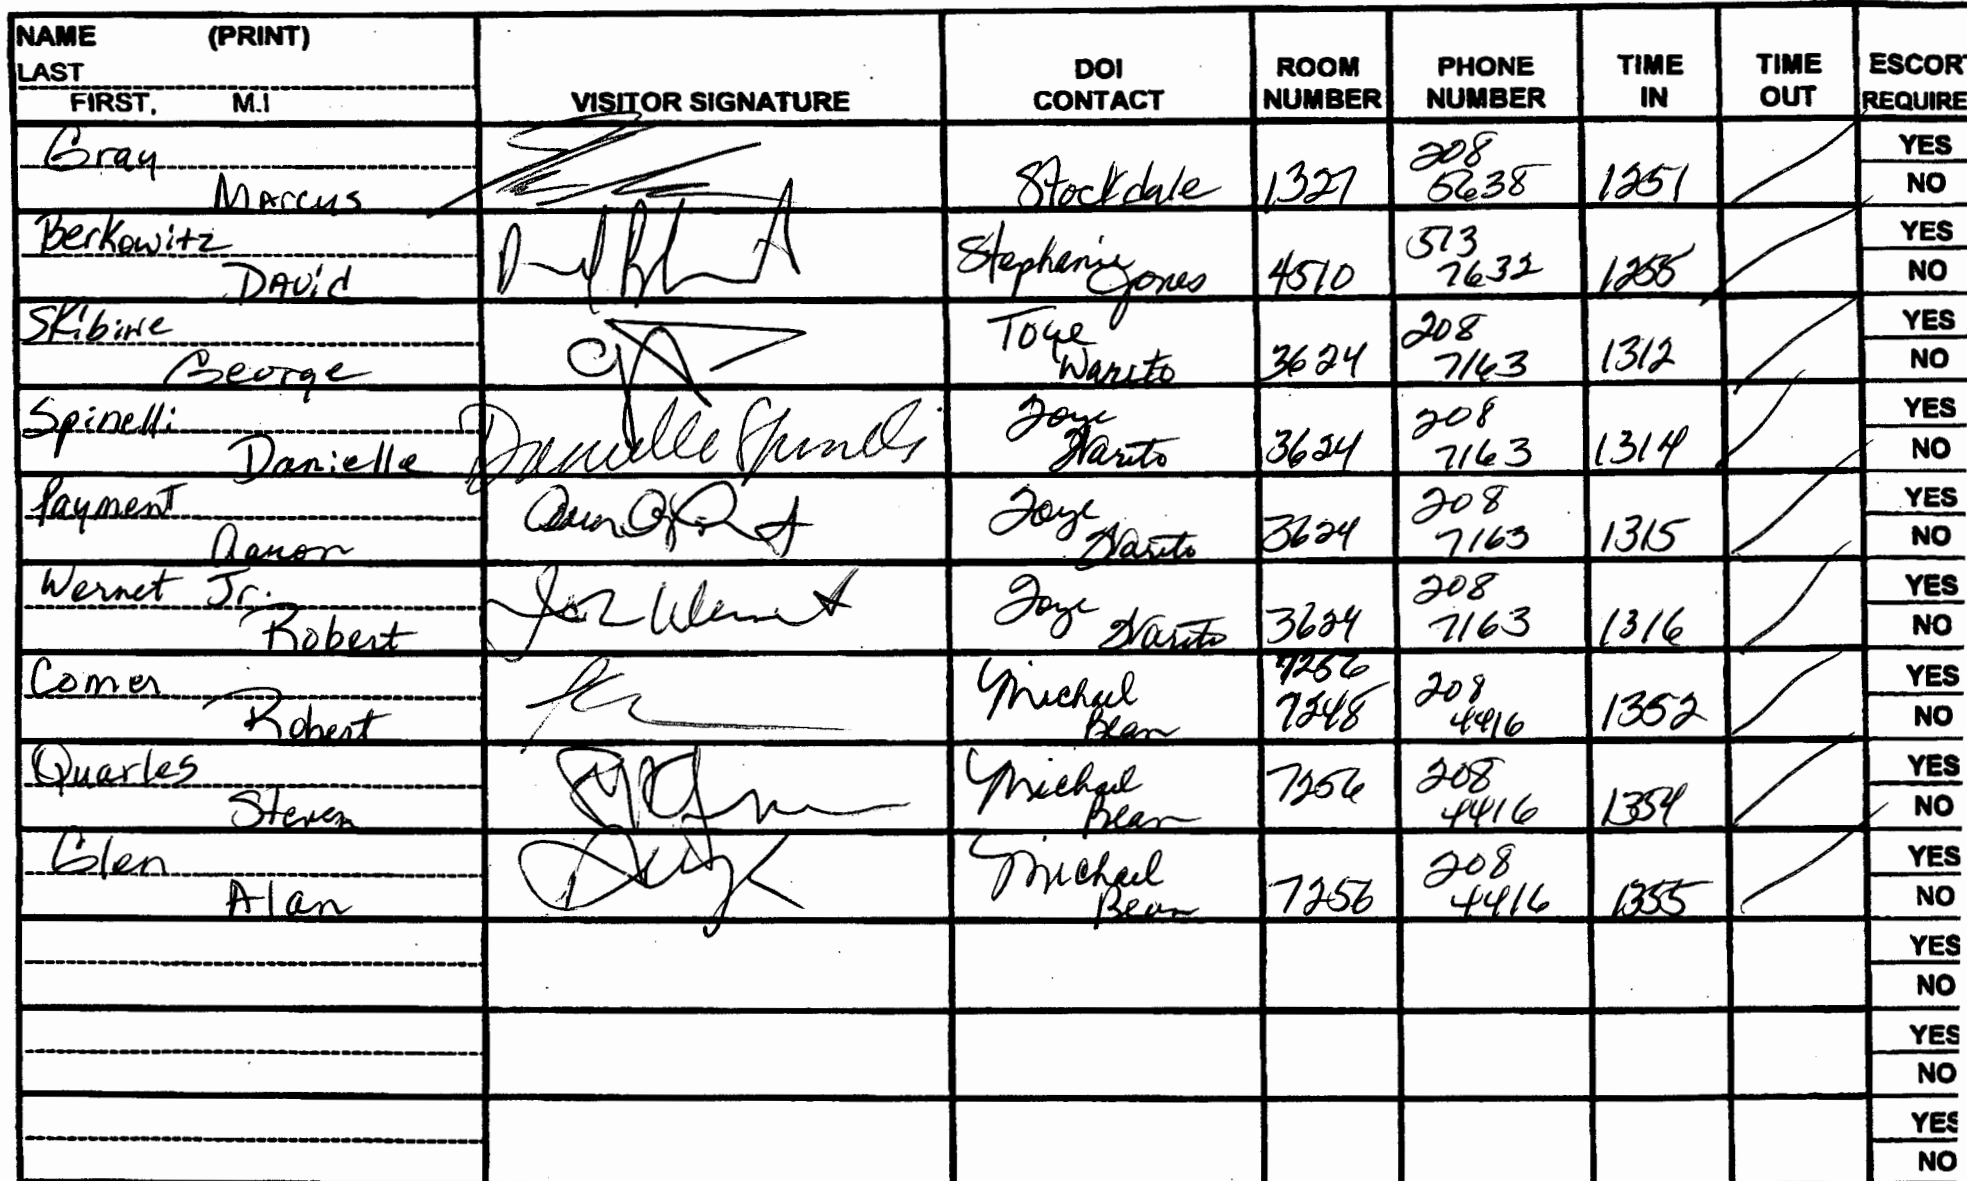 NAME (PRINT)
LAST
FIRST, M.I
VISITOR SIGNATURE
DOI
CONTACT
ROOM
NUMBER
PHONE
NUMBER
TIME
IN
TIME
OUT
ESCORT
REQUIRE
Gray
Marcus
Stockdale
1327
208
5638
1251
YES
NO
Berkowitz
David
Stephanie
Jones
4510
513
7632
1255
YES
NO
Skibine
George
Toye
3624
208
7163
1312
YES
NO
Spinelli
Danielle
Danielle Spinelli
3624
208
7163
1314
YES
NO
Payment
Aaron
3624
208
7163
1315
YES
NO
Wernet Jr.
Robert
3624
208
7163
1316
YES
NO
Comer
Robert
Michael
Bean
7256
7248
208
4416
1352
YES
NO
Quarles
Steven
Michael
Bean
7256
208
4416
1354
YES
NO
Glen
Alan
Michael
Bean
7256
208
4416
1355
YES
NO
YES
NO
YES
NO
YES
NO